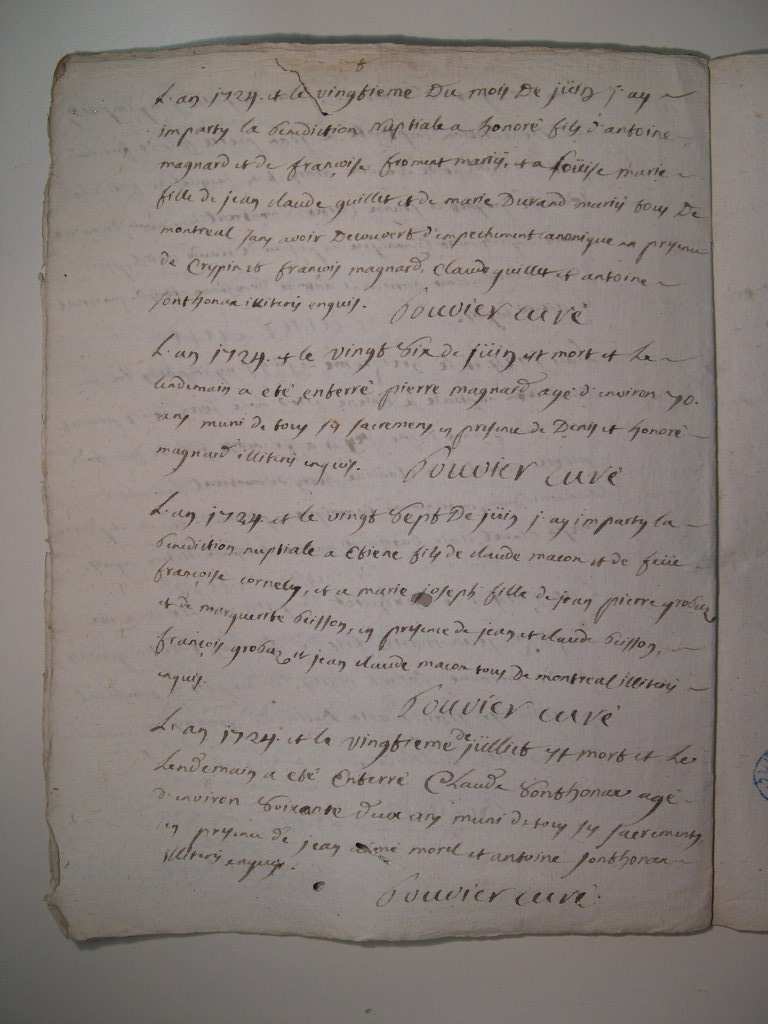 L'an 1724. et le vingtieme Du mois De juin j'ay
imparty la benediction nuptiale a honoré fils d'antoine
magnard et de françoise froment mariés, et a loüise marie
fille de jean claude guillet et de marie Durand mariés tous De
montreal sans avoir Decouvert d'empechement canonique en presence
de Crypin et françois magnard, Claude guillet et antoine
sonthonax illiterés enquis. Bouvier curé
L'an 1724. et le vingt six de juin est mort et le
lendemain a eté enterré pierre magnard agé d'environ 70.
ans muni de tous ses sacremens en presence de Denis et honoré
magnard illiterés enquis. Bouvier curé
L'an 1724. et le vingt sept De juin j'ay imparty la
benediction nuptiale a Etiene fils de claude macon et de feüe
françoise cornely, et a marie joseph fille de jean pierre grobaz
et de marguerite buisson, en presence de jean et claude buisson,
françois grobaz et jean claude macon tous de montreal illiterés
enquis. Bouvier curé
L'an 1724. et le vingtieme de juillet est mort et le
lendemain a eté Enterré Claude sonthonax agé
d'environ soixante deux ans muni de tous ses sacrements
en presence de jean aimé morel et antoine sonthonax
illiterés enquis.
Bouvier curé.